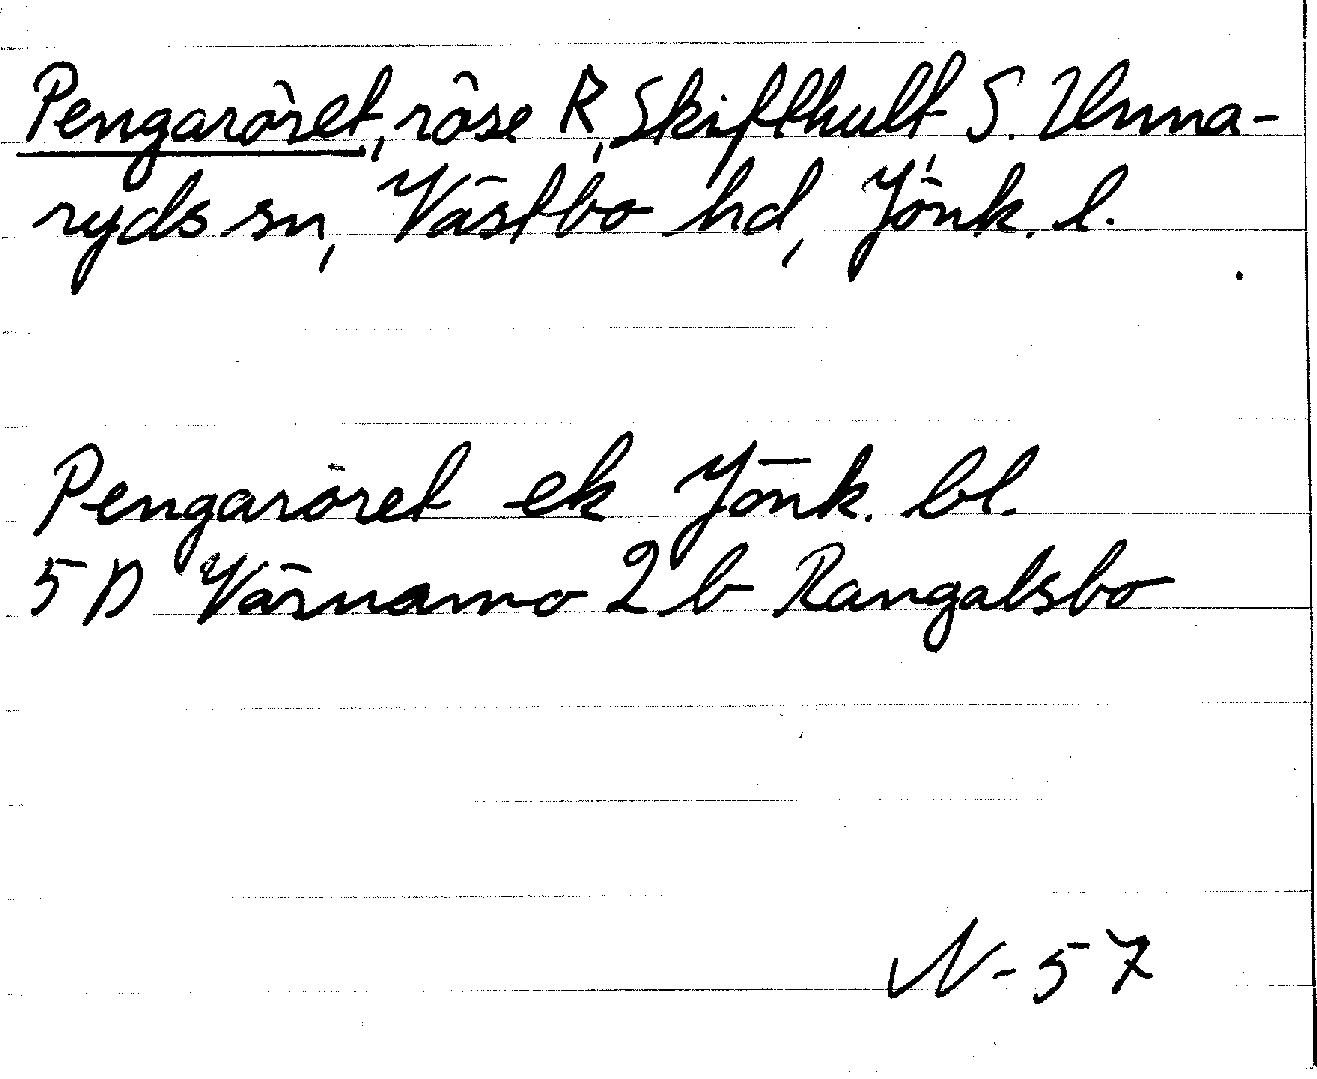 Pengaröret, röse R, Skifthult S. Unna-
ryds sn, Västbo hd, Jönk. l.
Pengaröret ek Jönk. bl.
5 D Värnamo 2 b Rangalsbo
N-57